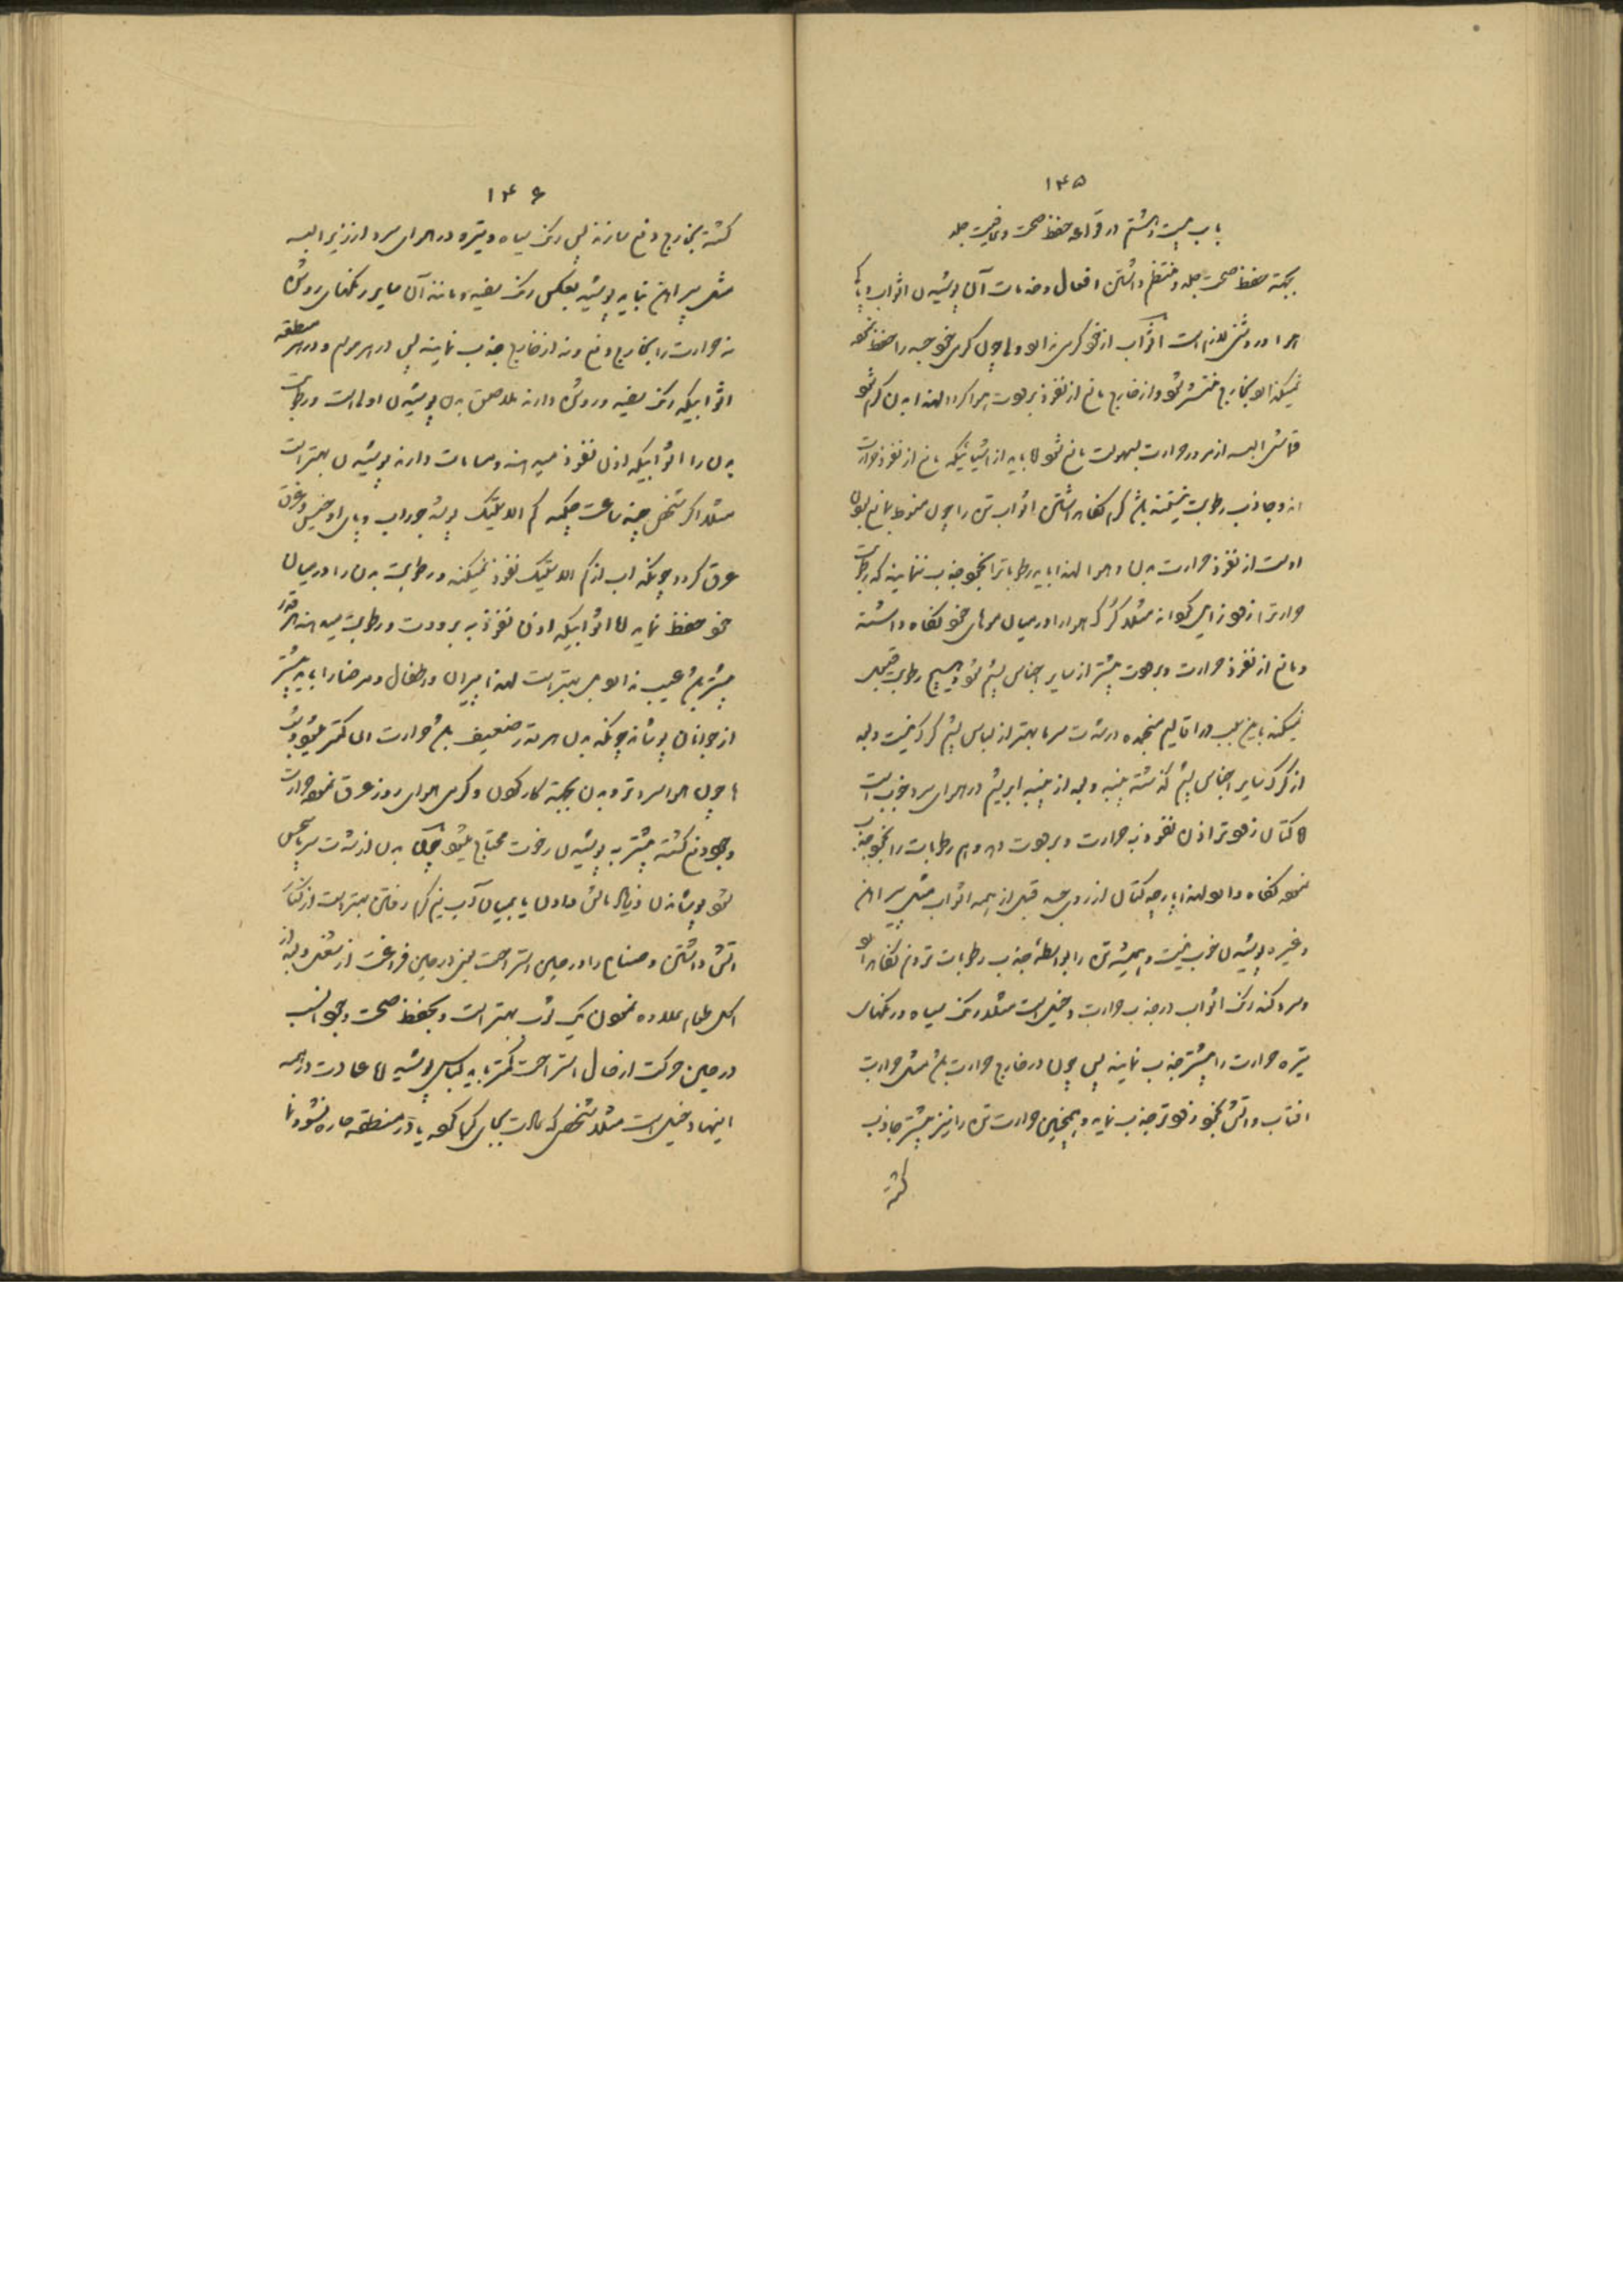 ۱۴۵
باب بیست و هشتم در قواعد حفظ صحت و عافیت جلد
بجهت حفظ صحت جلد و منتظم داشتن افعال و خدمات آن پوشیدن اثواب و پاکی
هوا و روشنی لازم است اثواب از خود گرمی ندارد ولی چون گرمی خود جسد را حفظ نموده
نمیگذارد بخارج منتشر شود و از خارج مانع از نفوذ برودت هوا گردد لهذا بدن گرم شود
قماش البسه از مرور حرارت بسهولت مانع شود اما باید از اشیائیکه مانع از نفوذ حرارت
اند و جاذب رطوبت نیستند باشد گرم نگاه داشتن اثواب تن را چون منوط بمانع بودن
اوست از نفوذ حرارت بدن و هوا لهذا باید رطوباترا بخود جذب ننمایند که رطوبت
حرارترا زودتر از هوا مثلا کرک هوا را در میان موهای خود نگاه داشته
و مانع از نفوذ حرارت و برودت بیشتر از سایر اجناس پشم شود و هیچ رطوبت قبول
نمیکند باین سبب در اقالیم منجمده در شدت سرما بهتر از لباس پشم کرک نیست و بعد
از کرک سایر اجناس پشم گذشته پنبه و بعد از پنبه ابریشم در هوای سرد خوب است
اما کتان زودتر اذن نفوذ به حرارت و برودت دهد و هم رطوبات را بخود جذب
نموده نگاه دارد لهذا پارچه کتان از روی جسد قبل از همه اثواب مثل پیراهن
و غیره پوشیدن خوب نیست و همیشه تن را بواسطه جذب رطوبات تر و نم نگاه دارد
و سرد کند رنگ اثواب در جذب حرارت دخیل است مثلا رنگ سیاه و رنگهای
تیره حرارت را بیشتر جذب نمایند پس چون در خارج حرارت باشد مثل حرارت
افتاب و اتش بخود زودتر جذب نماید و همچنین حرارت تن را نیز بیشتر جاذب
گشته
۱۴۶
گشته بخارج دفع سازند پس رنگ سیاه و تیره در هوای سرد از زیر البسه
مثل پیراهن نباید پوشید بعکس رنگ سفید و مانند آن سایر رنگهای روشن
نه حرارت را بخارج دفع و نه از خارج جذب نمایند پس در هر موسم و در هر منطقه
اثوابیکه رنگ سفید و روشن دارند ملاصق بدن پوشیدن اولی است و رطوبت
بدن را اثوابیکه اذن نفوذ میدهند و مسامات دارند پوشیدن بهتر است
مثلا اگر شخص چند ساعت چکمه گم الاستیک پوشد جوراب و پای او خیس و غرق
عرق گردد چونکه اب از گم الاستیک نفوذ نمیکند و رطوبت بدن را در میان
خود حفظ نماید اما اثوابیکه اذن نفوذ به برودت و رطوبت میدهند هر قدر
بیشتر باشد عیب ندارد بل بهتر است لهذا پیران و اطفال و مرضا را باید بیشتر
از جوانان پوشاند چونکه بدن هر قدر ضعیف باشد حرارت ان کمتر میشود و شب
ها چون هوا سردتر و بدن بجهت کار کردن و گرمی هوای روز عرق نموده حرارت
وجود دفع گشته بیشتر به پوشیدن رخوت محتاج میشود چون بدن از شدت سرما بیحس
شود پوشاندن و مالش دادن یا بمیان آب نیم گرم رفتن بهتر است از کنار
اتش داشتن و صنایع را در حین استراحت یعنی در حین فراغت از شغل و بعد از
اکل طعام علاوه نمودن یک ثوب بهتر است و بحفظ صحت وجود انسب
در حین حرکت از حال استراحت کمتر باید لباس پوشید اما عادت در همه
اینها دخیل است مثلا شخص که عادت بجای گرما کرده یا در منطقه حاره نشو و نما